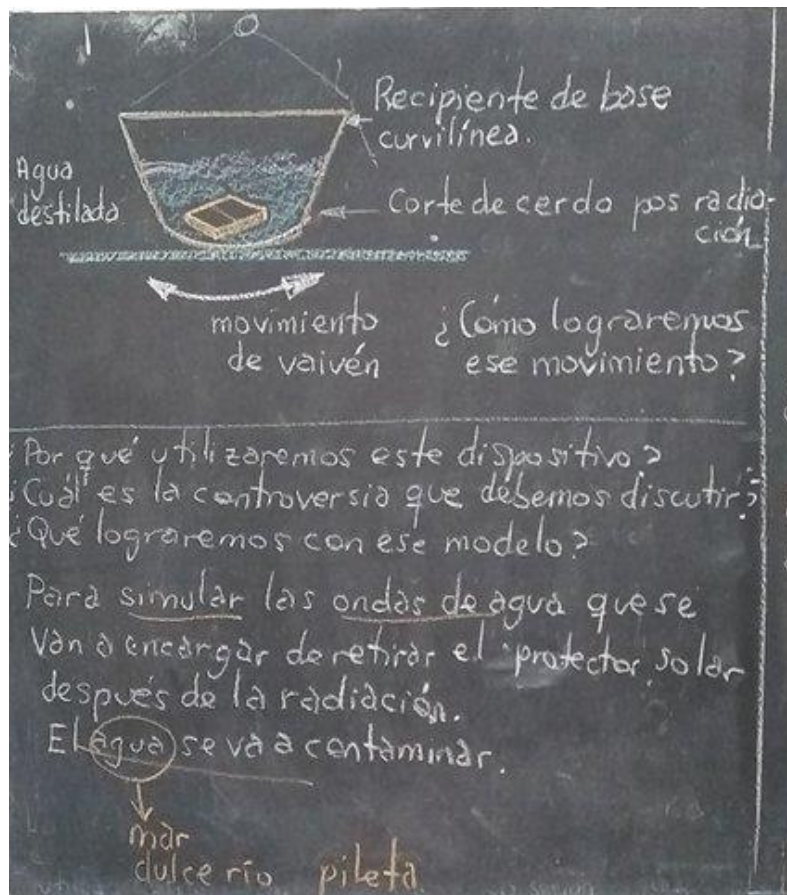 Recipiente de base
curvilínea.
Agua
destilada
Corte de cerdo pos radia-
ción
movimiento
de vaivén
¿Cómo lograremos
ese movimiento?
¿Por qué utilizaremos este dispositivo?
¿Cuál es la controversia que debemos discutir?
¿Qué lograremos con ese modelo?
Para simular las ondas de agua que se
van a encargar de retirar el protector solar
después de la radiación.
El agua se va a contaminar.
mar
dulce río pileta